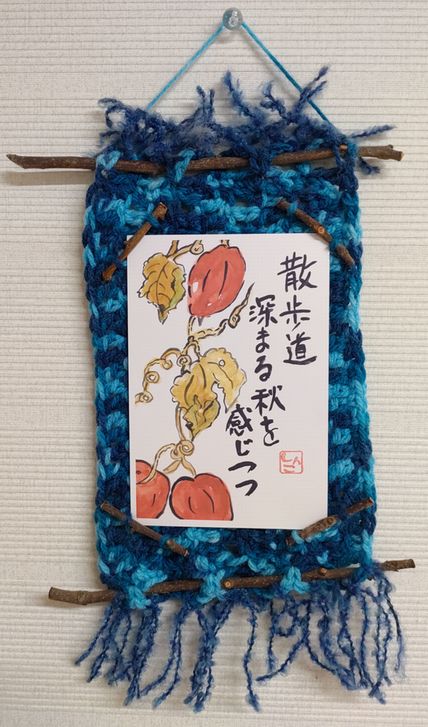 散歩道
深まる秋を
感じつつ